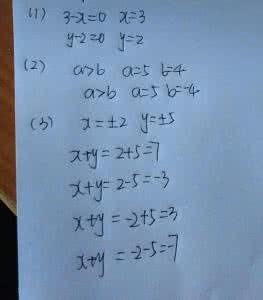 (1) 3-x=0 x=3
y-2=0 y=2
(2) a>b a=5 b=4
a>b a=5 b=-4
(3) x=±2 y=±5
x+y=2+5=7
x+y=2-5=-3
x+y=-2+5=3
x+y=-2-5=-7